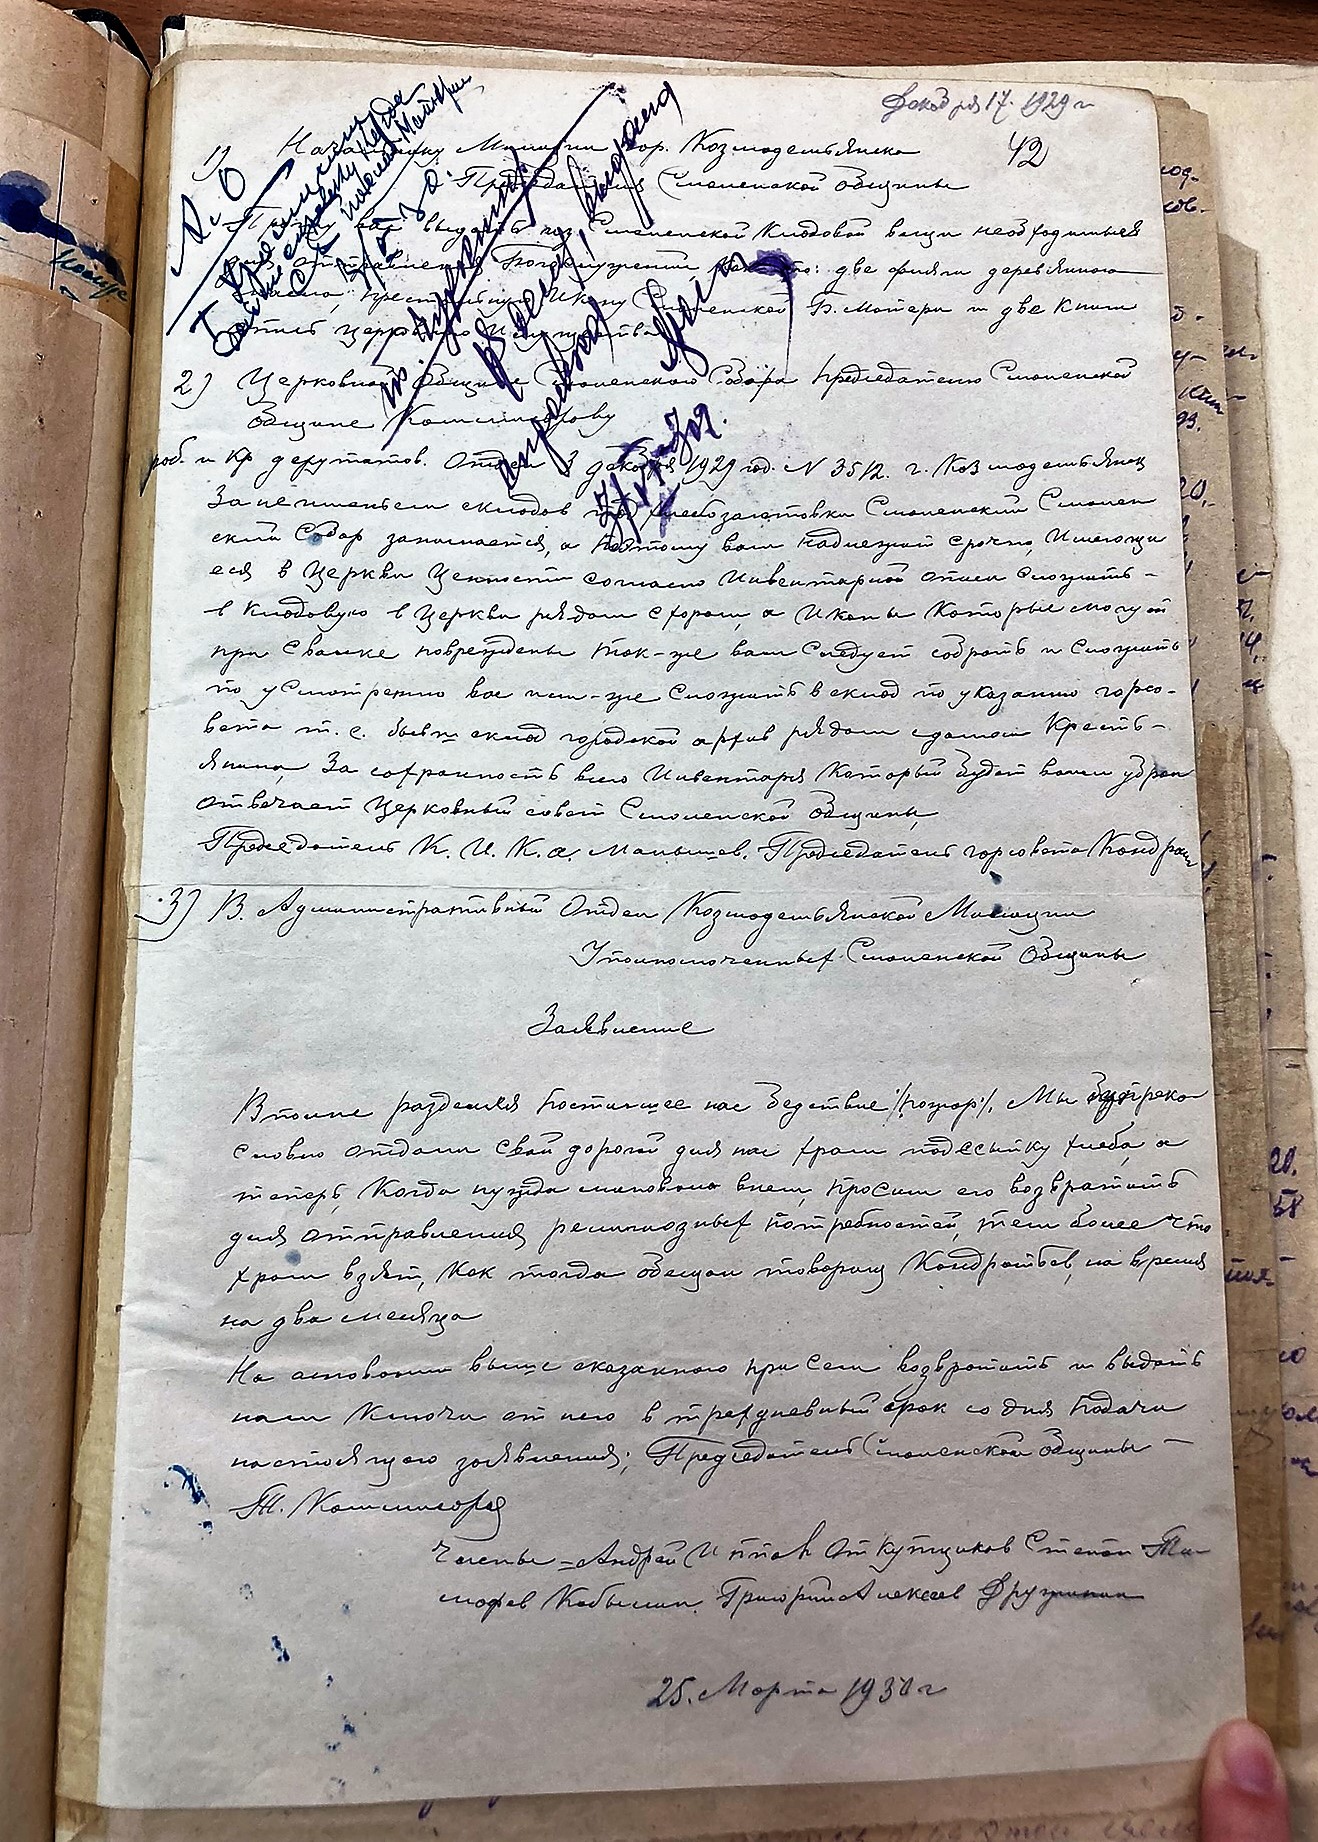 Декабря 17. 1929 г
42
1) Начальнику Милиции гор. Козмодемьянска
Председателя Смоленской общины
Прошу вас выдать из Смоленской Кладовой вещи необходимыя
для отправления Богослужений, две деревянного
масла, престольную Икону Смоленской Б. Матери и две книги
описи Церковного Имущества
А. О
2) Церковной Общине Смоленского Собора председателю Смоленской
Общине
раб. и кр депутатов. Отдел 3 декабря 1929 год. N 3512. г. Козмодемьянск
За неимением складов под хлебозаготовки Смоленский Смолен
ский Собор занимается, а поэтому вам надлежит срочно, Имеющи
еся в Церкви Ценности согласно Инвентарной описи сложить –
в кладовую в Церкви рядом с хорам, а Иконы Которые могут
при свалке повреждены так-же вам следует собрать и сложить
по усмотрению вас или-же сложить в склад по указанию горсо-
вета т. е. бывш склад городской архив рядом с домом Кресть-
янина, За сохранность всего Инвентаря Который будет вами убран
отвечает Церковный совет Смоленской общины,
Председатель К. И. К. а. Малышев. Председатель горсовета Кондрат
3) В. Административный Отдел Козмодемьянской Милиции
Уполномоченных Смоленской Общины
Заявление
Вполне разделяя постигшее нас бедствие /пожар/, Мы безпреко
словно отдали свой дорогой для нас храм под ссыпку хлеба, а
теперь, Когда нужда миновала в нем, просим его возвратить
для отправления религиозных потребностей, тем более что
храм взят, Как тогда обещал товарищ Кондратьев, на время
на два месяца
На основании выше сказанного просим возвратить и выдать
нам Ключи от него в трехдневный срок со дня подачи
настоящего заявления; Председатель Смоленской общины –
Члены – Андрей Откупщиков Степан Ти-
мофев Кобылин. Григорий Алексеев Дружинин
25. Марта 1930 г